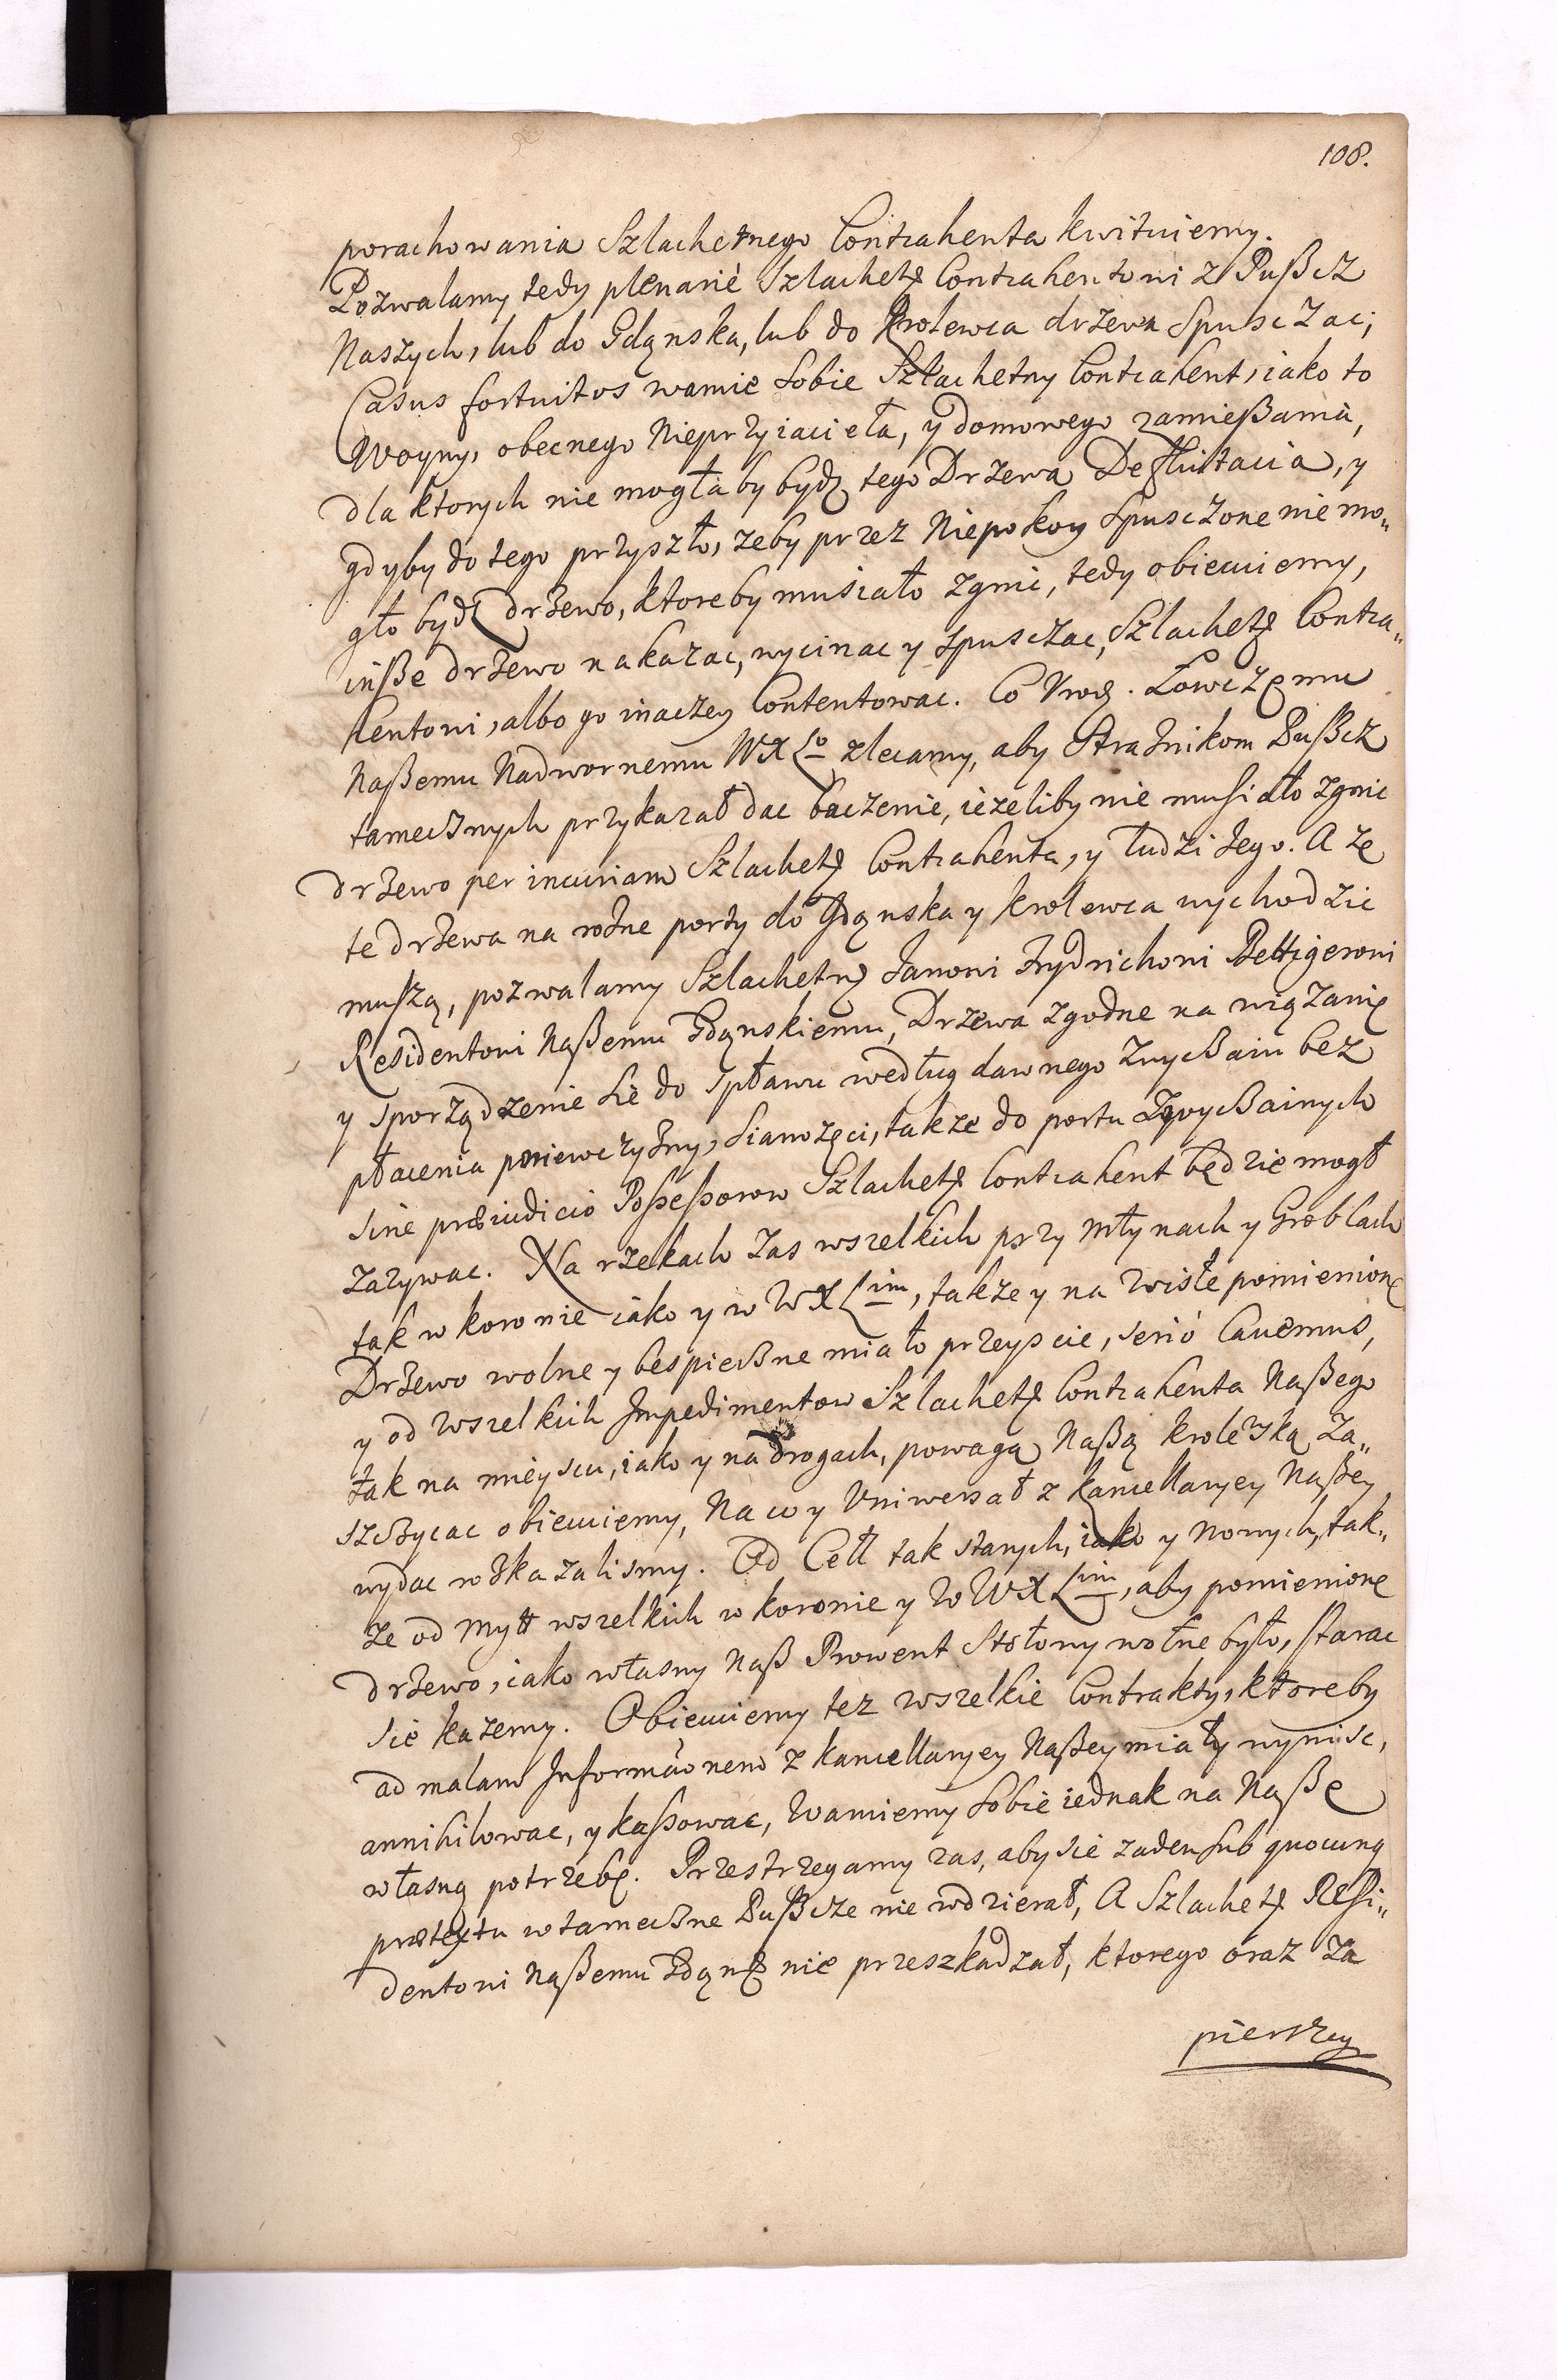 108.
porachowania Szlachetnego Contrahenta kwituiemy.
Pozwalamy tedy plenarié Szlachetꝫ Contrahentowi z Pußcz
Naszych, lub do Gdąnska, lub do Krolewca drzewa Spusczac;
Casus fortuitos waruie sobie Szlachetny Contrahent, iako to
Woyny, obecnego Nieprzyiaciela, y domowego zamießania,
dla ktorych nie mogłaby bydz tego Drzewa Defluitacia, y
gdyby do tego przyszło, zeby przez Niepokoy Spusczone nie mo„
gło bydz drzewo, ktoreby musiało zgnic, tedy obiecuiemy,
inße drzewo nakazac, wycinac y spusczac, Szlachetꝫ Contra„
hentowi, albo go inaczey Contentowac. Co Vrodz. Łowczęmu
Naßemu Nadwornemu WXLo zlecamy, aby Straznikom Pußcz
tamecznych przykazał dac baczenie, iezeliby nie musiało zgnic
drzewo per incuriam Szlachetꝫ Contrahenta, y ludzi Jego. A ze
te drzewa na rozne porty do Gdąnska y Krolewca wychodzic
muszą, pozwalamy Szlachetnꝫ Janowi Frydrichowi Bettigerowi
Residentowi Naßemu Gdąnskiemu, Drzewa zgodne na wiązanie
y sporządzenie sie do spławu według dawnego zwyczaiu bez
płacenia poniewczyzny, sianozęci, takze do portu zwyczainych
sine præiudicio Possessorow Szlachetꝫ Contrahent będzie mogł
zazywac. Na rzekach zas wszelkich przy młynach y Groblach
tak w koronie iako y w WXLim, takze y na Wisle pomienione
Drzewo wolne y bespieczne miało przeyscie, serio Cauemus,
y od wszelkich Impedimentow Szlachetꝫ Contrahenta Naßego
tak na mieyscu, iako y na drogach, powagą Naßą krolewską za„
szczycac obiecuiemy, Na co y Uniwersał z kancellaryey Naßey
wydac roskazalismy. Od Ceł tak starych, iako y nowych, tak„
ze od Myt wszelkich w koronie y W WXLim, aby pomienione
drzewo, iako własny Naß Prowent Stołowy wolne było, starac
sie każemy. Obiecuiemy tez wszelkie Contrakty, ktoreby
ad malam Informaonem z kancellaryey Naßey miały wyniśc,
annihilowac, y kassowac, Waruiemy sobie iednak na Naßę
własną potrzebę. Przestrzegamy zas, aby sie zaden sub quocunq
prætextu w tameczne Pußcze nie wdzierał, A Szlachetꝫ Resi„
dentowi Naßemu Gdąnꝫ nie przeszkadzał, ktorego oraz za
pierszey